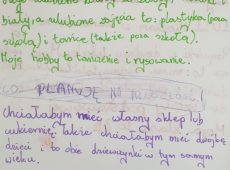 biały, a ulubione zajęcia to: plastyka (poza
szkołą) i tańce (także poza szkołą).
Moje hobby to tańczenie i rysowanie.
PLANUJĘ NA
Chciałabym mieć własny sklep lub
cukiernię. Także chciałabym mieć dwójkę
dzieci i to obie dziewczynki w tym samym
wieku.